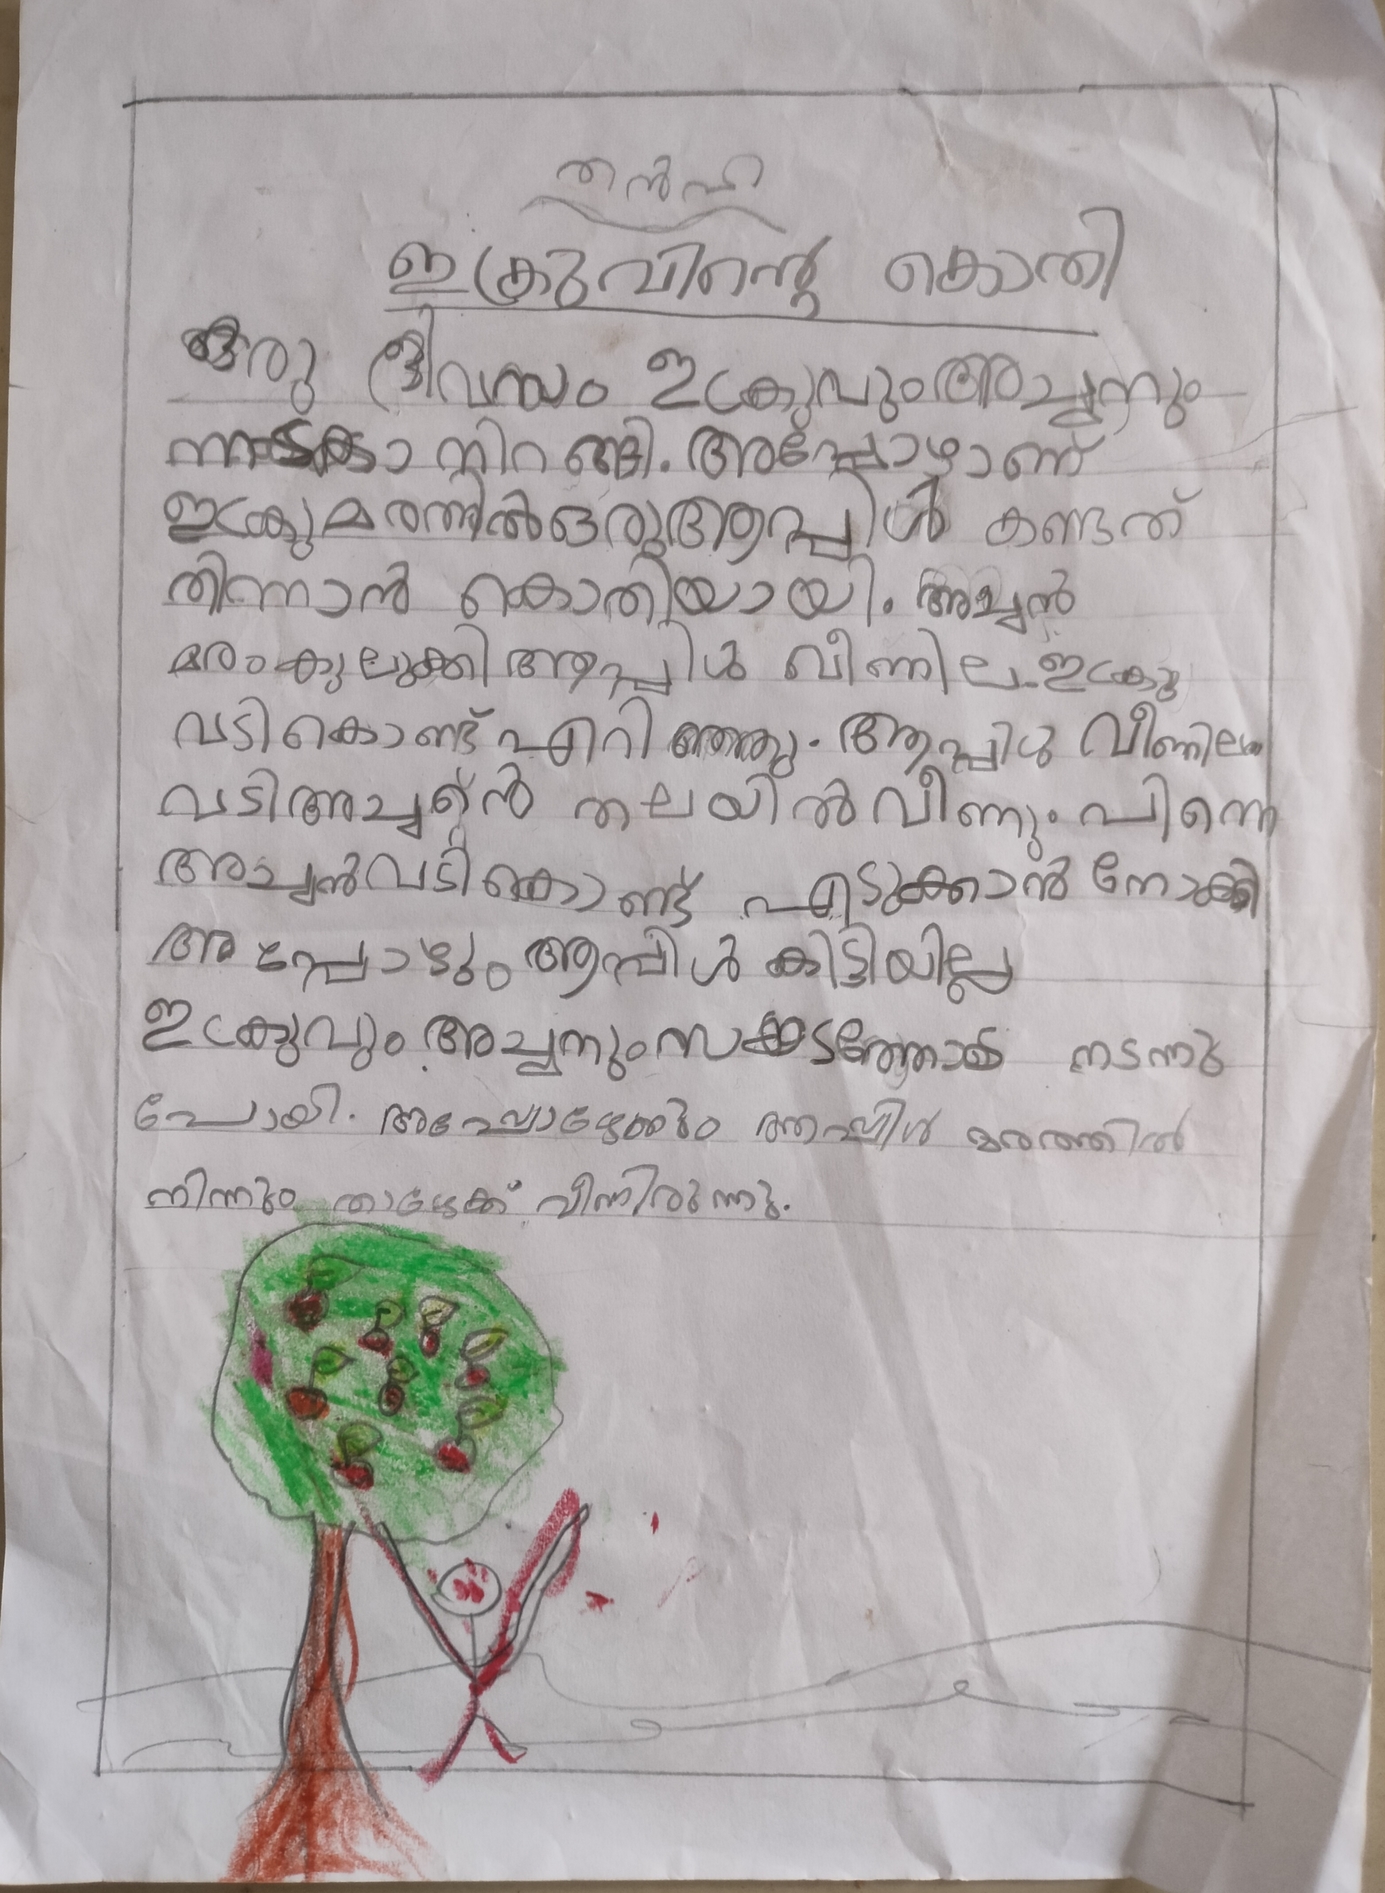 തൻഹ
ഇക്രുവിന്റെ കൊതി
ഒരു ദിവസം ഇക്രുവും അച്ചനും
നടക്കാ നിറ ങ്ങി. അപ്പോഴാണ്
ഇക്രു മരത്തിൽ ഒരു ആപ്പിൾ കണ്ടത്
തിന്നാൻ കൊതിയായി. അച്ചൻ
മരം കുലുക്കി ആപ്പിൾ വീണില. ഇക്രു
വടി കൊണ്ട് എറി ഞ്ഞു. ആപ്പിൾ വീണില
വടി അച്ചന്റെൻ തലയിൽ വീണു. പിന്നെ
അച്ചൻ വടി കൊണ്ട് എടുക്കാൻ നോക്കി
അപ്പോഴും ആപ്പിൾ കിട്ടിയില്ല
ഇക്രുവും അച്ചനും സങ്കടത്തോടെ നടന്നു
പോയി. അപ്പോഴേക്കും ആപ്പിൾ മരത്തിൽ
നിന്നും താഴേക്ക് വീന്നിരുന്നു.